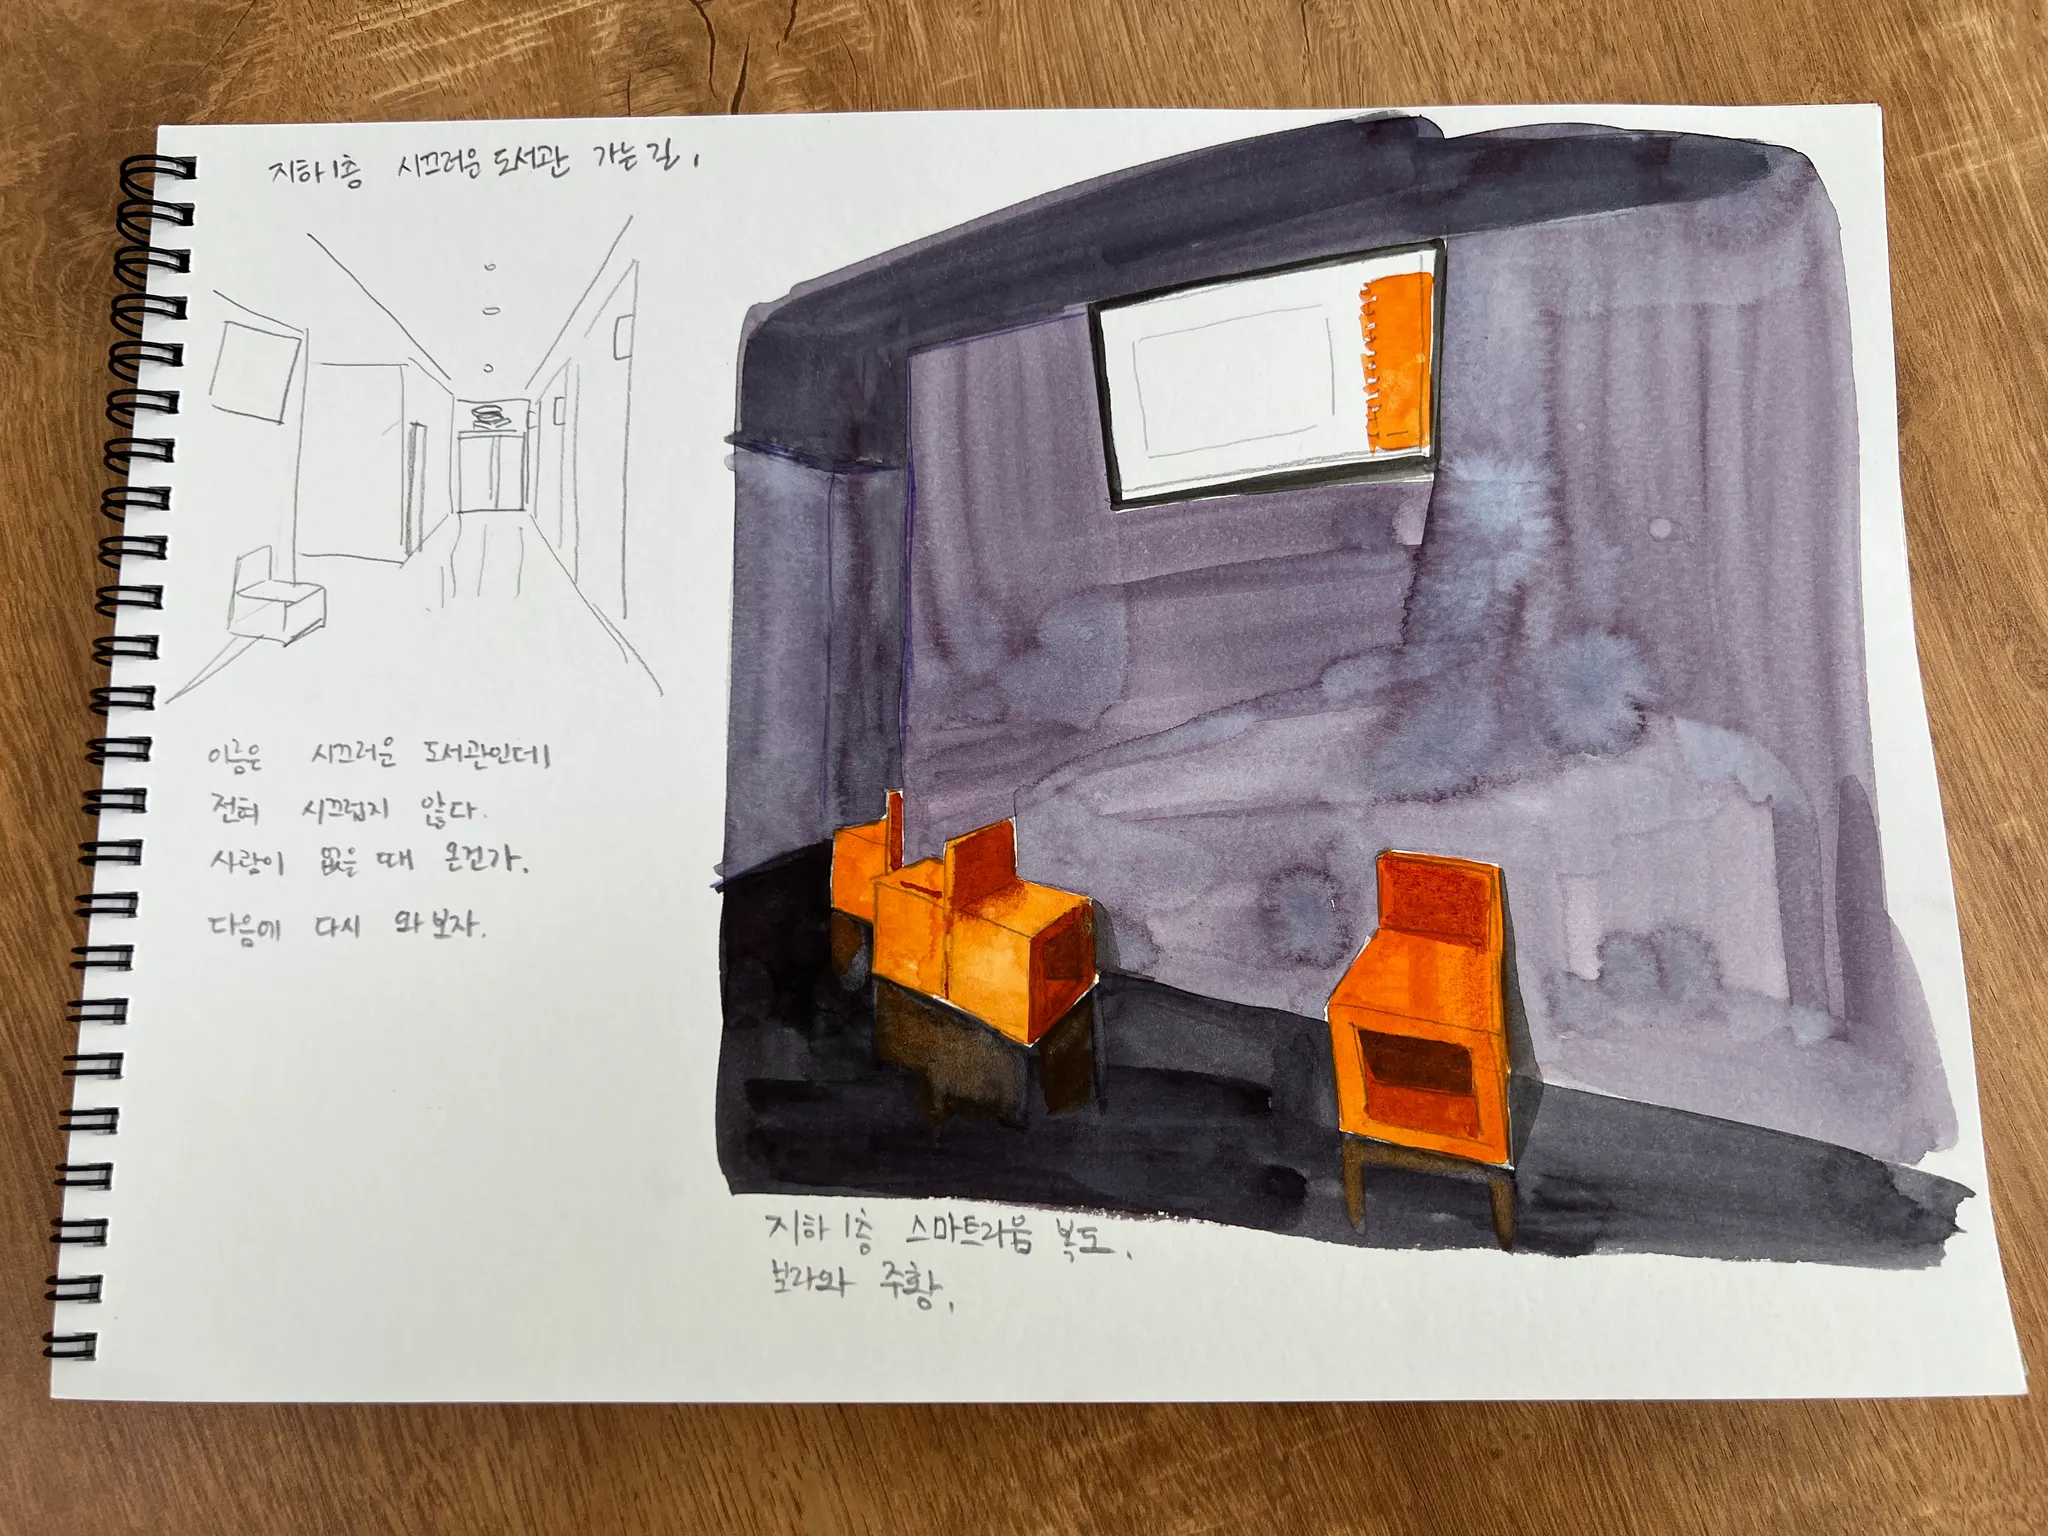 지하1층 시끄러운 도서관 가는 길.
이름은 시끄러운 도서관인데
전혀 시끄럽지 않다.
사람이 없을 때 온건가.
다음에 다시 와 보자.
지하 1층 스마트라움 복도.
보라와 주황.